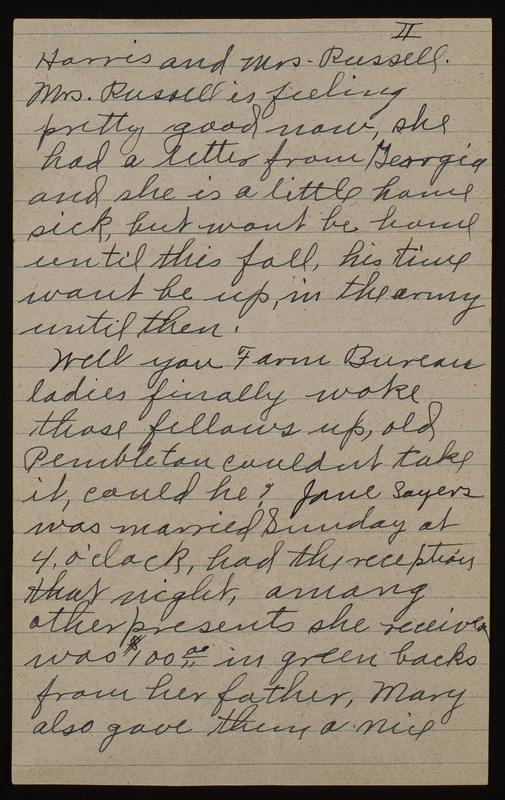 II
Harris and Mrs. Russell.
Mrs. Russell is feeling
pretty good now, she
had a letter from Georgia
and she is a little home
sick, but wont be home
until this fall, his time
wont be up, in the army
until then.
Well you Farm Bureau
ladies finally woke
those fellows up, old
Pembleton couldnt take
it, could he? Jane Sayers
was married Sunday at
4, o'clock, had the reception
that night, among
other presents she received
was $100.00 in green backs
from her father, Mary
also gave them a nice